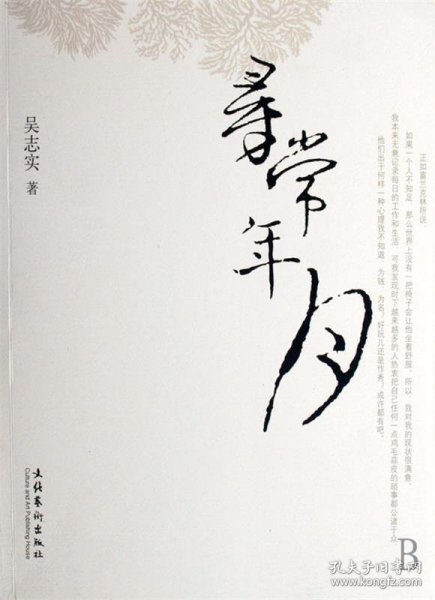 尋常年月
吴志实 著
正如富兰克林所说
如果一个人不知足，那么世界上没有一把椅子会让他坐着舒服。所以，我对我的现状很满意。
我本来无意记录每日的工作和生活，可我发现时下越来越多的人热衷把自己任何一点鸡毛蒜皮的琐事都公诸于众，
他们出于何样一种心理我不知道，为钱，为名，好玩儿还是作秀，或许都有吧。
文化藝術出版社
Culture and Art Publishing House
B
孔夫子旧书网
www.kongfz.com